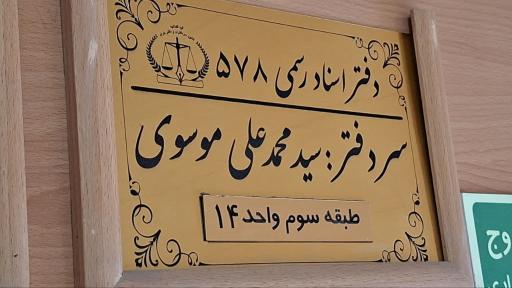 دفتر اسناد رسمی ۵۷۸
سردفتر: سید محمد علی موسوی
طبقه سوم واحد ۱۴